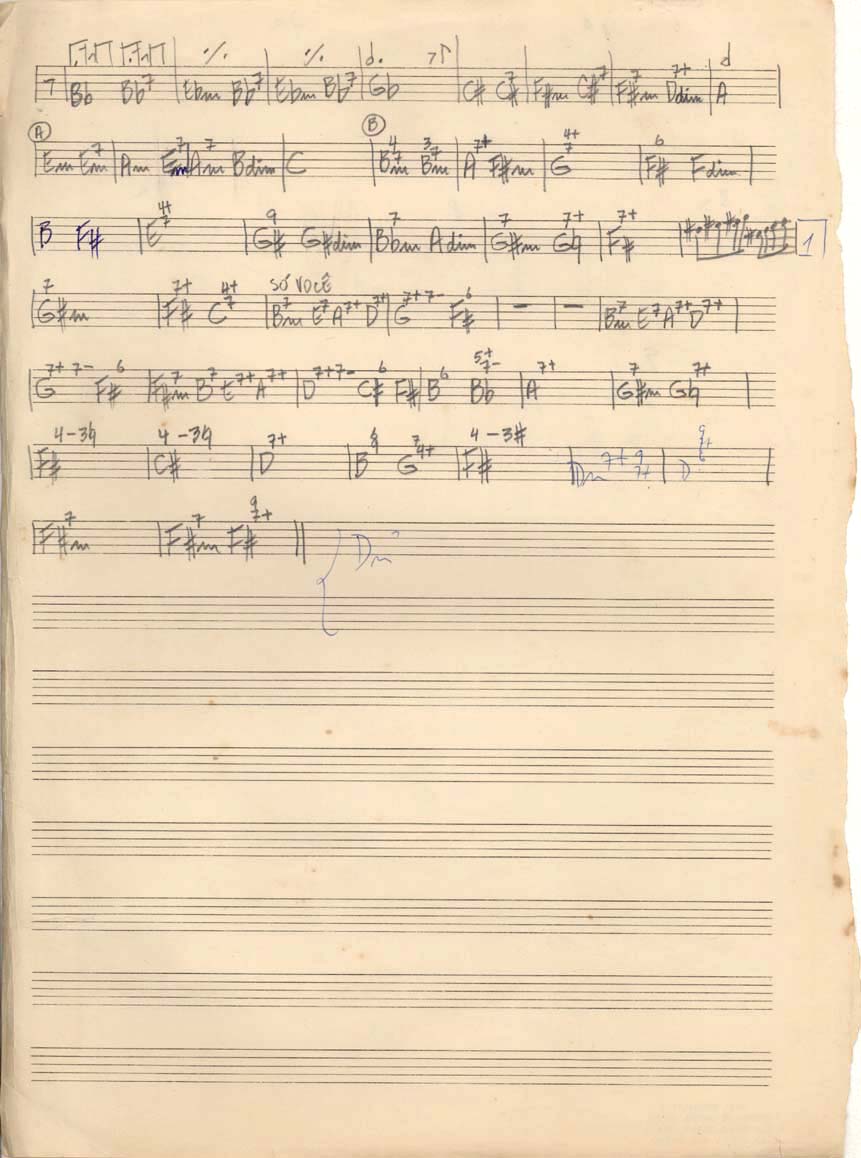 ٪ ٪ d. 7 d
7 Bb Bb7 | Ebm Bb7 | Ebm Bb7 | Gb | C# C#7 | F#m C#7 | F#7m Ddim7+ | A
A B
Em Em7 | Am Em7 | Am7 Bdim | C | B7m4 B7m3 | A7+ F#m | G74+ | F#6 Fdim
B F# | E74+ | G#9 G#dim | Bbm7 Adim | G#m7 G♮7+ | F#7+ | 1
SÓ VOCÊ
G#m7 | F#7+ C74+ | Bm7 E7 A7+ D7+ | G7+7- F#6 | - | - | Bm7 E7 A7+ D7+
G7+7- F#6 | F#m7 B7 E7+ A7+ | D7+7- C#6 F# | B6 Bb5+7- | A7+ | G#m7 G♮7+
F#4-3♮ | C#4-3♮ | D7+ | B G74+ | F#4-3# | Dm7+ 97+ | D97+6
F#m7 | F#m7 F#97+ || { Dm